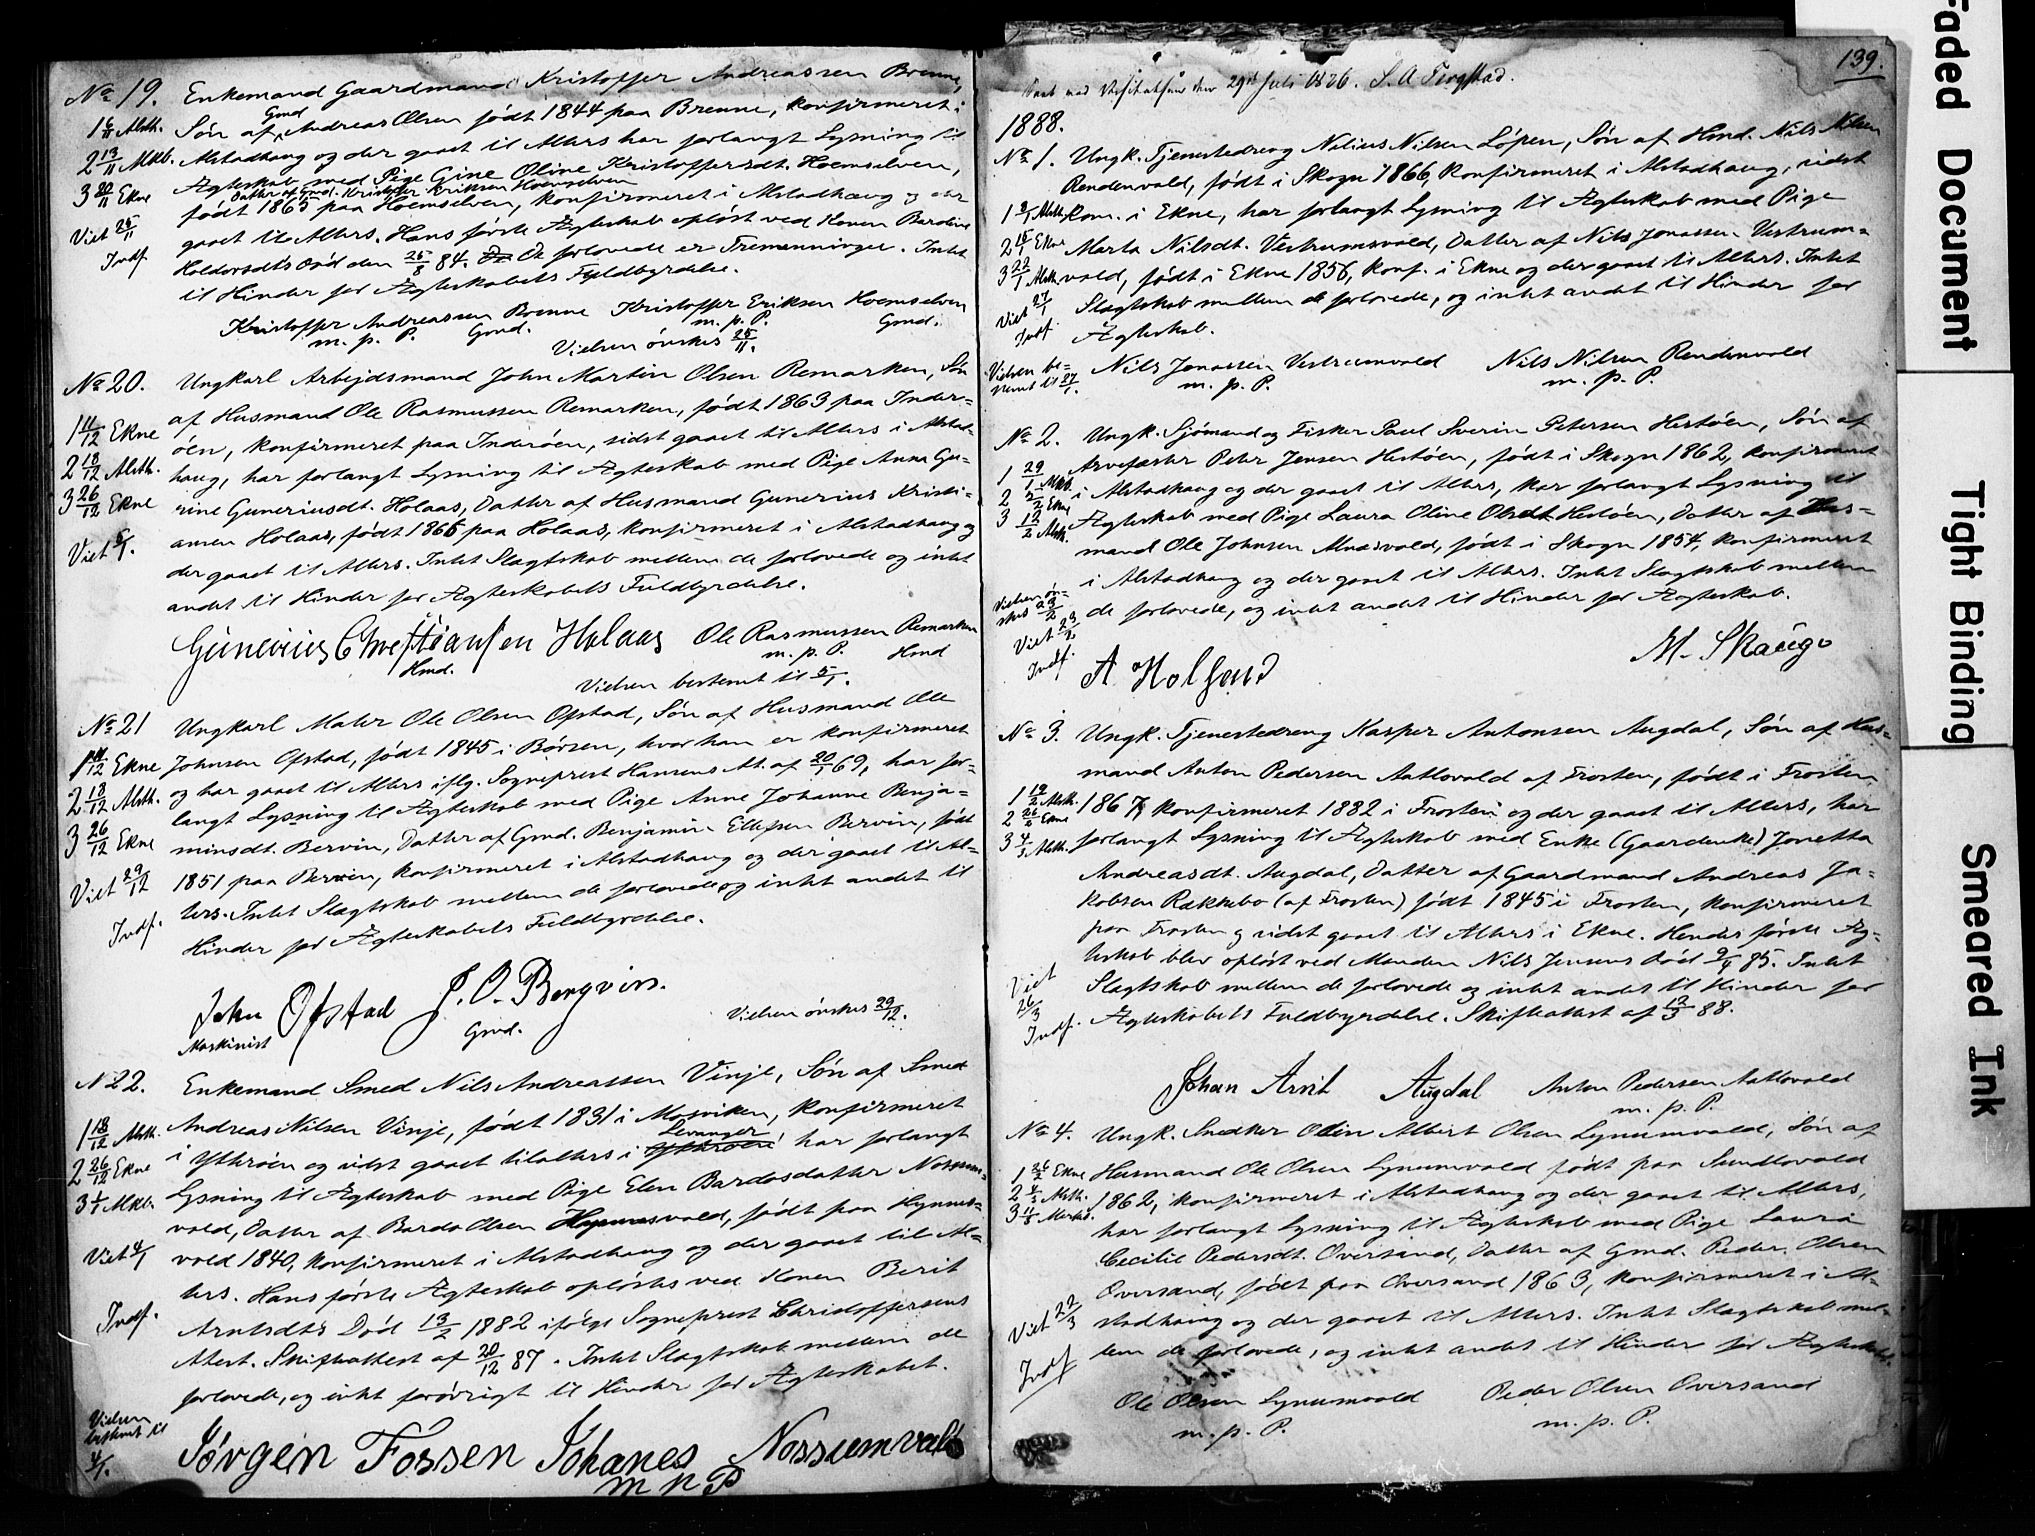 No 19. Enkemand Gaardmand Kristoffer Andreassen Brenne,
Gmd
1 6/11 Alsth. Søn af Andreas Olsen født 1844 paa Brenne, konfirmeret i
2 13/11 Mkb. Alstadhaug og der gaaet til Alters har forlangt Lysning til
3 20/11 Ekne Ægteskab med Pige Gine Oline Kristoffersdt. Hoemselven,
Datter af Gmd. Kristoffer Eriksen Hoemselven
født 1865 paa Hoemselven, konfirmeret i Alstadhaug og der
Viet 25/11 gaaet til Alters. Hans første Ægteskab opløst ved Konen Bardine
Indf. Haldorsdt's Død den 25/8 84. De forlovede er Tremenninger. Intet
til Hinder for Ægteskabets Fuldbyrdelse.
Kristoffer Andreassen Brenne Kristoffer Eriksen Hoemselven
m. p. P. Gmd. m. p. P. Gmd.
Vielsen ønskes 25/11.
No 20. Ungkarl Arbejdsmand John Martin Olsen Remarken, Søn
af Husmand Ole Rasmussen Remarken, født 1863 paa Inder-
1 11/12 Ekne øen, konfirmeret paa Inderøen, sidst gaaet til Alters i Alstad-
2 18/12 Alsth. haug, har forlangt Lysning til Ægteskab med Pige Anna Gu-
3 26/12 Ekne rine Guneriusdt. Holaas, Datter af Husmand Gunerius Kristi-
ansen Holaas, født 1865 paa Holaas, konfirmeret i Alstadhaug og
Viet 5/1. der gaaet til Alters. Intet Slægtskab mellem de forlovede og intet
andet til Hinder for Ægteskabets Fuldbyrdelse.
Gunerius Christiansen Holaas Ole Rasmussen Remarken
Hmd. m. p. P. Hmd
Vielsen bestemt til 5/1.
No 21 Ungkarl Maler Ole Olsen Opstad, Søn af Husmand Ole
1 11/12 Ekne Johnsen Opstad, født 1845 i Børsen, hvor han er konfirmeret
2 18/12 Alsth. og har gaaet til Alters iflg. Sogneprest Hansens At. af 20/1 69, har for-
langt Lysning til Ægteskab med Pige Anne Johanne Benja-
3 26/12 Ekne minsdt. Bervin, Datter af Gmd. Benjamin Ellefsen Bervin, født
Viet 29/12 1851 paa Bervin, konfirmeret i Alstadhaug og der gaaet til Al-
Indf. ters. Intet Slægtskab mellem de forlovede og intet andet til
Hinder for Ægteskabets Fuldbyrdelse.
John Opstad J. O. Bergvin.
Maskinist Gmd.
Vielsen ønskes 29/12.
N 22. Enkemand Smed Nils Andreassen Vinje, Søn af Smed
1 18/12 Alsth. Andreas Nilsen Vinje, født 1831 i Mosviken, konfirmeret
Levanger
2 26/12 Ekne i Ytterøen og sidst gaaet tilalters i Ytterøen har forlangt
3 1/1 Mkb. Lysning til Ægteskab med Pige Elen Bardosdatter Nossum-
vald, Datter af Bardo Olsen Hynnesvald, født paa Hynnes-
Viet 4/1 vald 1840, konfirmeret i Alstadhaug og der gaaet til Al-
ters. Hans første Ægteskab opløstes ved Konen Berit
Indf. Arntsdt's Død 13/2 1882 ifølge Sogneprest Christoffersens
Attest. Skifteattest af 20/12 87. Intet Slægtskab mellem de
forlovede, og intet forøvrigt til Hinder for Ægteskabet.
Vielsen bestemt til 4/1.
Jørgen Fossen Johanes Nossumvald
m p P
139.
29de Juli 1886. S. A. Trogstad.
1888.
No 1. Ungk. Tjenestedreng Nelius Nilsen Løpen, Søn af Hmd. Nils Nilsen
Rendenvald, født i Skogn 1866, konfirmeret i Alstadhaug, sidst
1 8/1 Alsth. kom. i Ekne, har forlangt Lysning til Ægteskab med Pige
2 15/1 Ekne Marta Nilsdt. Vestrumsvald, Datter af Nils Jonassen Vestrum-
3 22/1 Alsth. vald, født i Ekne 1856, konf. i Ekne og der gaaet til Alters. Intet
Viet 27/1 Slægtskab mellem de forlovede, og intet andet til Hinder for
Indf. Ægteskab.
Vielsen be- Nils Jonassen Vestrumvald Nils Nilsen Rendenvald
stemt til 27/1. m. p. P. m. p. P.
No 2. Ungk. Sjømand og Fisker Paul Sverin Petersen Hestøen, Søn af
1 29/1 Mkb. Arvefæster Peter Jensen Hestøen, født i Skogn 1862, konfirmeret
2 5/2 Ekne i Alstadhaug og der gaaet til Alters, har forlangt Lysning til
3 12/2 Alsth. Ægteskab med Pige Laura Oline Olsdt. Hestøen, Datter af Hus-
mand Ole Johnsen Alnæsvald, født i Skogn 1854, konfirmeret
i Alstadhaug og der gaaet til Alters. Intet Slægtskab mellem
Vielsen øn-
skes 23/2 de forlovede, og intet andet til Hinder for Ægteskab.
Viet 23/2
Indf. A Holsand M. Skaugo
No 3. Ungk. Tjenestedreng Kasper Antonsen Augdal, Søn af Hus-
mand Anton Pedersen Aatlovald af Frosten, født i Frosten
1 19/2 Alsth. 1867, konfirmeret 1882 i Frosten og der gaaet til Alters, har
2 26/2 Ekne forlangt Lysning til Ægteskab med Enke (Gaardenke) Jonetta
3 4/3 Alsth. Andreasdt. Augdal, Datter af Gaardmand Andreas Ja-
kobsen Rakkebo (af Frosten) født 1845 i Frosten, konfirmeret
paa Frosten og sidst gaaet til Alters i Ekne. Hendes første Æg-
teskab blev opløst ved Manden Nils Jensens Død 9/4 85. Intet
Viet Slægtskab mellem de forlovede og intet andet til Hinder for
26/3
Indf. Ægteskabets Fuldbyrdelse. Skifteattest af 13/3 88.
Johan Arnt Augdal Anton Pedersen Aatlovald
m. p. P.
No 4. Ungk. Snedker Odin Albert Olsen Lynumvald, Søn af
1 26/2 Ekne Husmand Ole Olsen Lynumvald født paa Sundlovald
2 4/3 Alsth. 1862, konfirmeret i Alstadhaug og der gaaet til Alters,
3 11/3 Markb. har forlangt Lysning til Ægteskab med Pige Laura
Cecilie Pedersdt. Oversand, Datter af Gmd. Peder Olsen
Oversand, født paa Oversand 1863, konfirmeret i Al-
Viet 22/3 stadhaug og der gaaet til Alters. Intet Slægtskab mel-
Indf lem de forlovede, og intet andet til Hinder for Ægteskabet.
Ole Olsen Lynumvald Peder Olsen Oversand
m. p. P. m. p. P.
Faded Document
Tight Binding
Smeared Ink